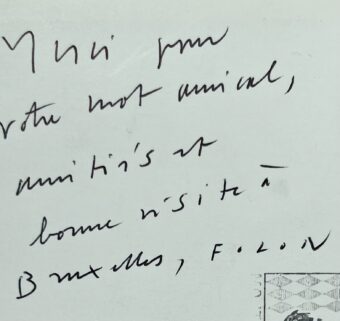 Merci pour
votre mot amical,
amitiés et
bonne visite à
Bruxelles, F.O.L.O.N